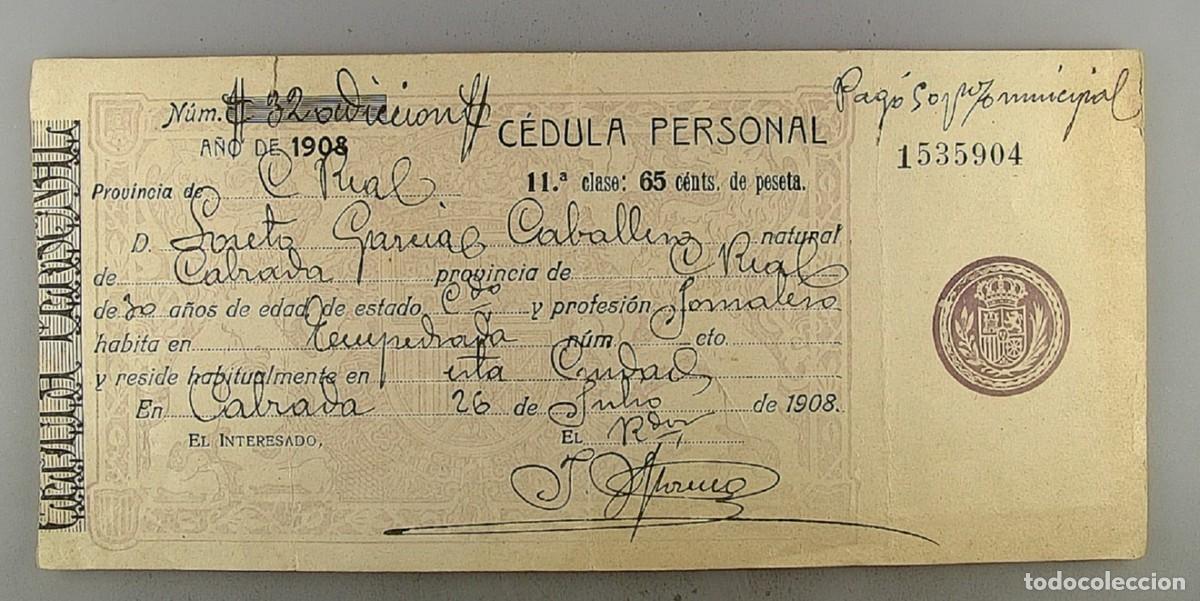 Núm. # 32 adicion #
Pagó 50 p% municipal
AÑO DE 1908
CÉDULA PERSONAL
1535904
Provincia de C Real
11.ª clase: 65 cénts. de peseta.
D. Loreto Garcia Caballero natural
de Calzada provincia de C Real
de 30 años de edad de estado Cdo y profesión Jornalero
habita en Empedrada núm. cto.
y reside habitualmente en esta Ciudad
En Calzada 26 de Julio de 1908.
EL INTERESADO,
EL Rdor
J. Moreno
todocoleccion